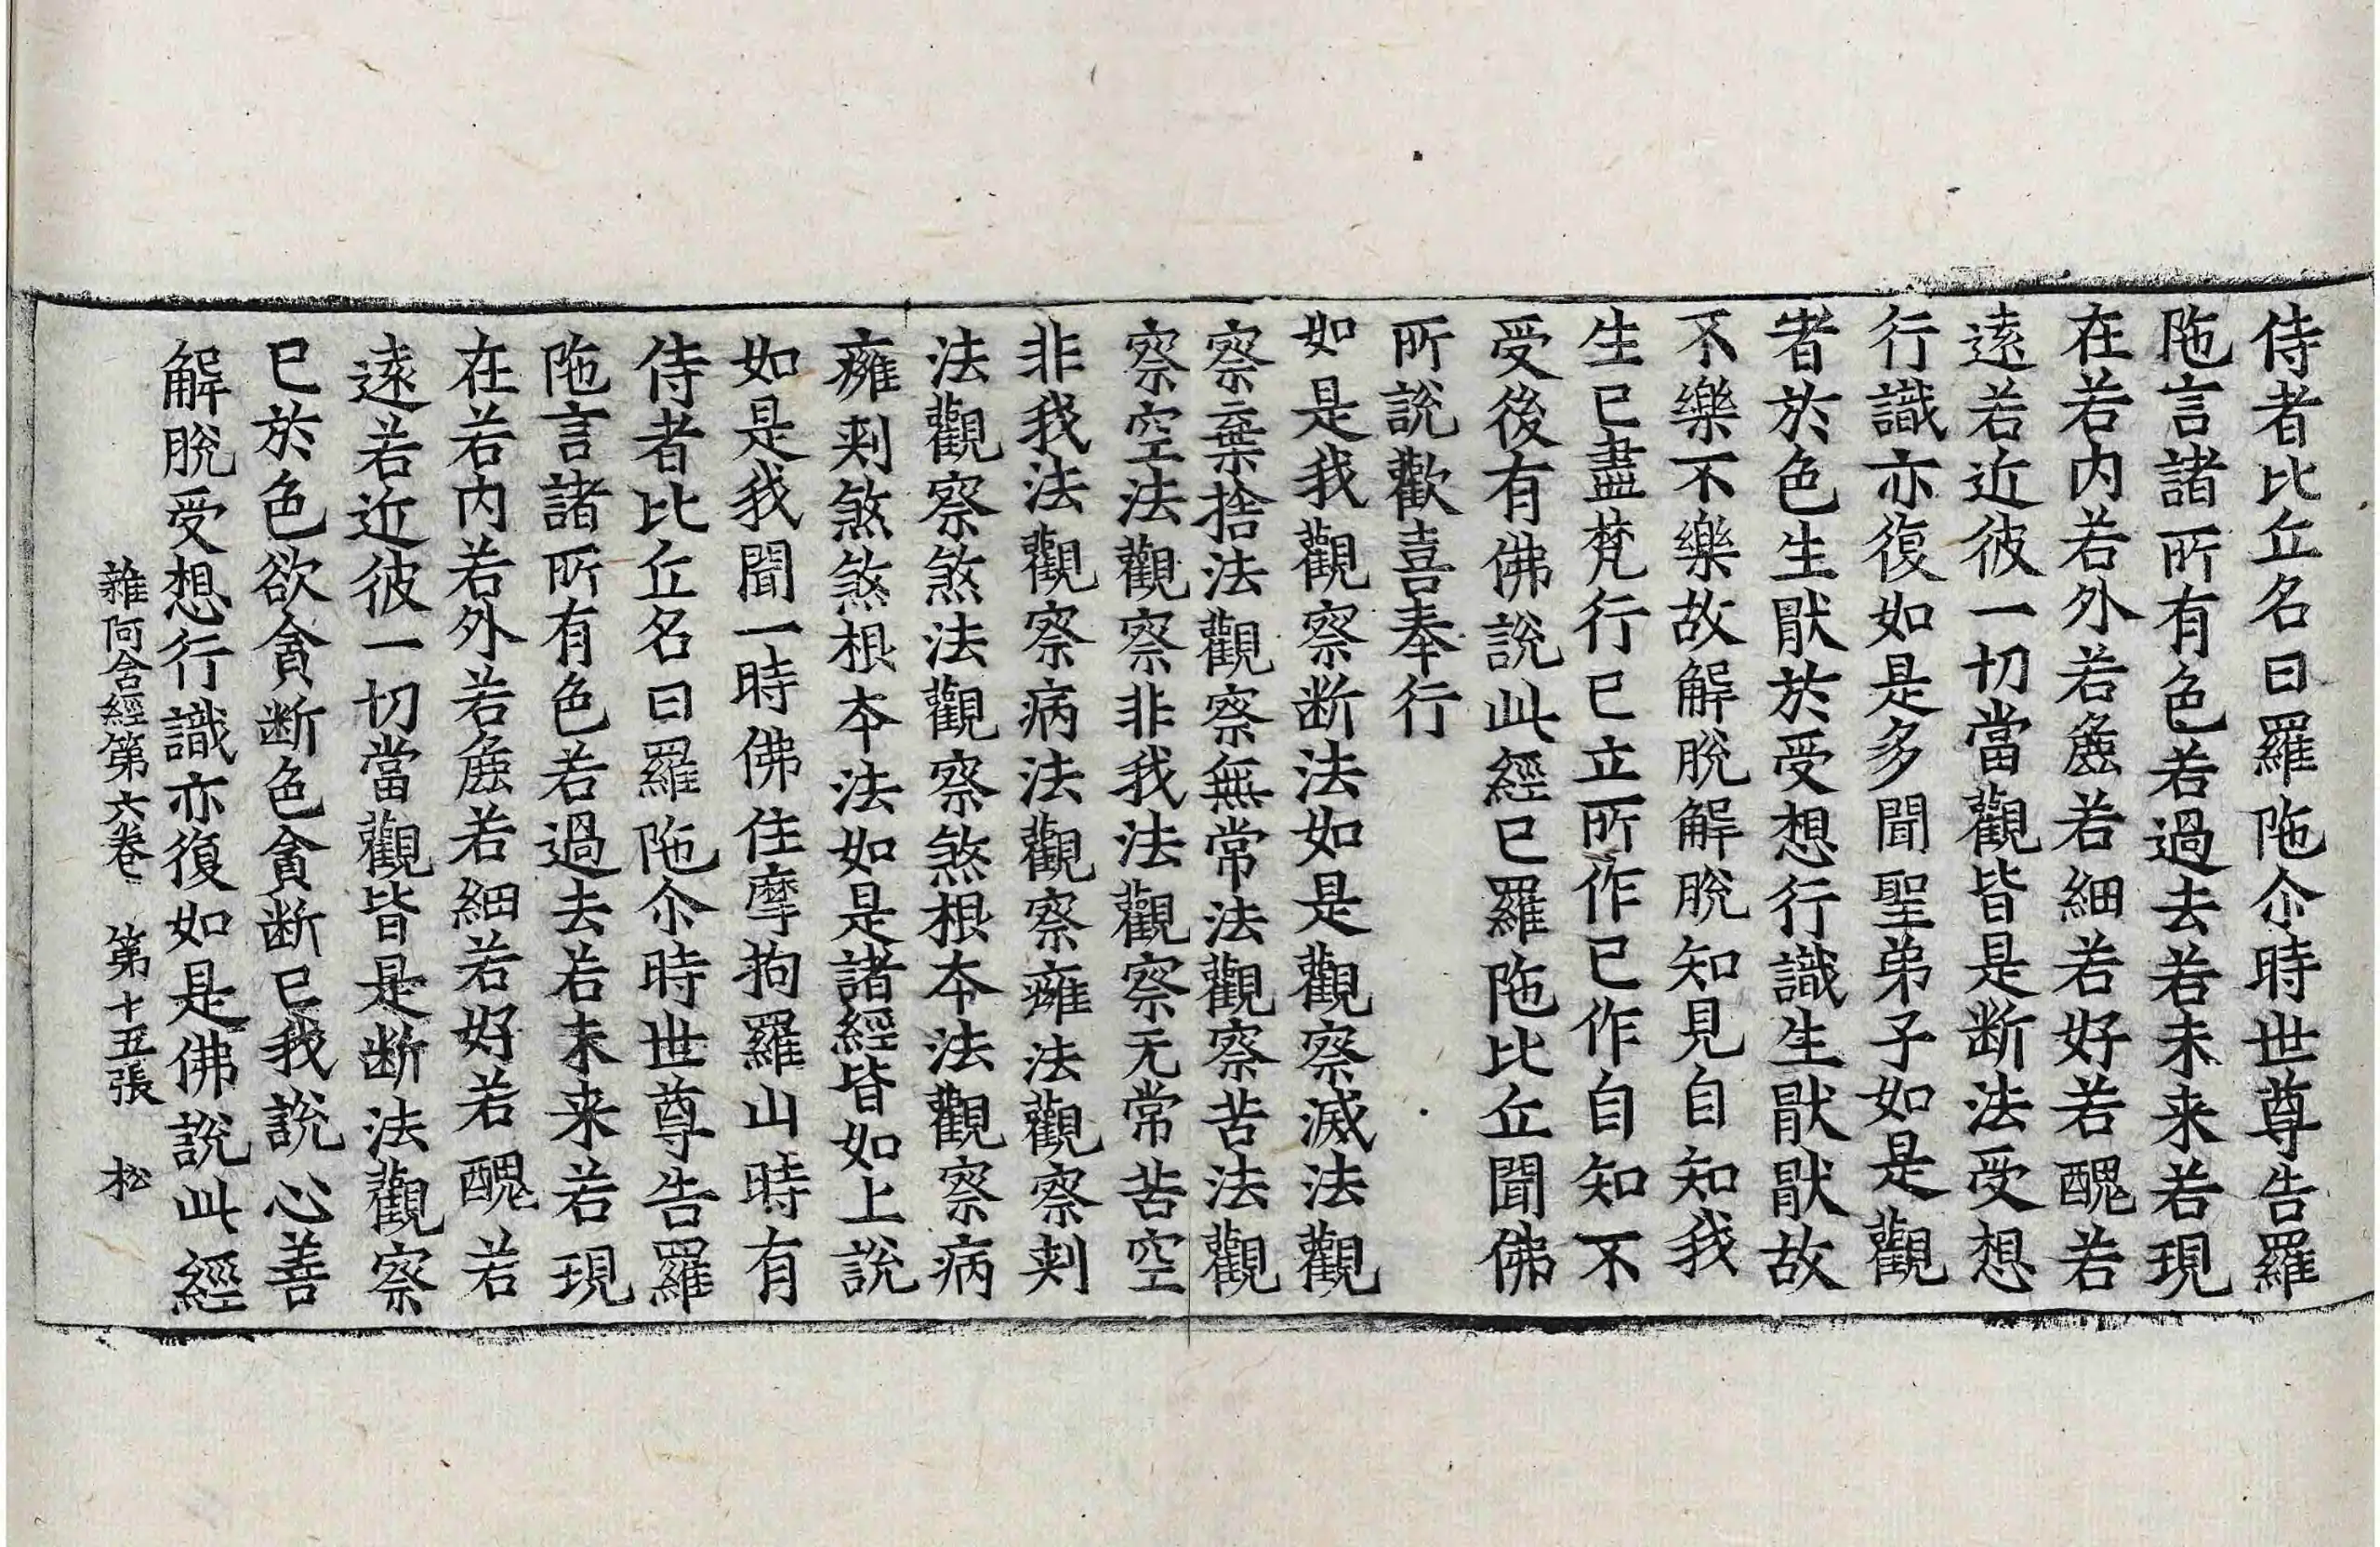 侍者比丘名曰羅陁尒時世尊告羅
陁言諸所有色若過去若未来若現
在若内若外若麁若細若好若醜若
逺若近彼一切當觀皆是断法受想
行識亦復如是多聞聖弟子如是觀
者於色生猒於受想行識生猒猒故
不樂不樂故解脫解脫知見自知我
生已盡梵行已立所作已作自知不
受後有佛說此經已羅陁比丘聞佛
所說歡喜奉行
如是我觀察断法如是觀察滅法觀
察棄捨法觀察無常法觀察苦法觀
察空法觀察非我法觀察无常苦空
非我法觀察病法觀察癰法觀察刾
法觀察煞法觀察煞根夲法觀察病
癰刾煞煞根夲法如是諸經皆如上說
如是我聞一時佛住摩拘羅山時有
侍者比丘名曰羅陁尒時世尊告羅
陁言諸所有色若過去若未来若現
在若内若外若麁若細若好若醜若
逺若近彼一切當觀皆是断法觀察
已於色欲貪断色貪断已我說心善
解脫受想行識亦復如是佛說此經
雜阿含經第六卷 第十五張 松